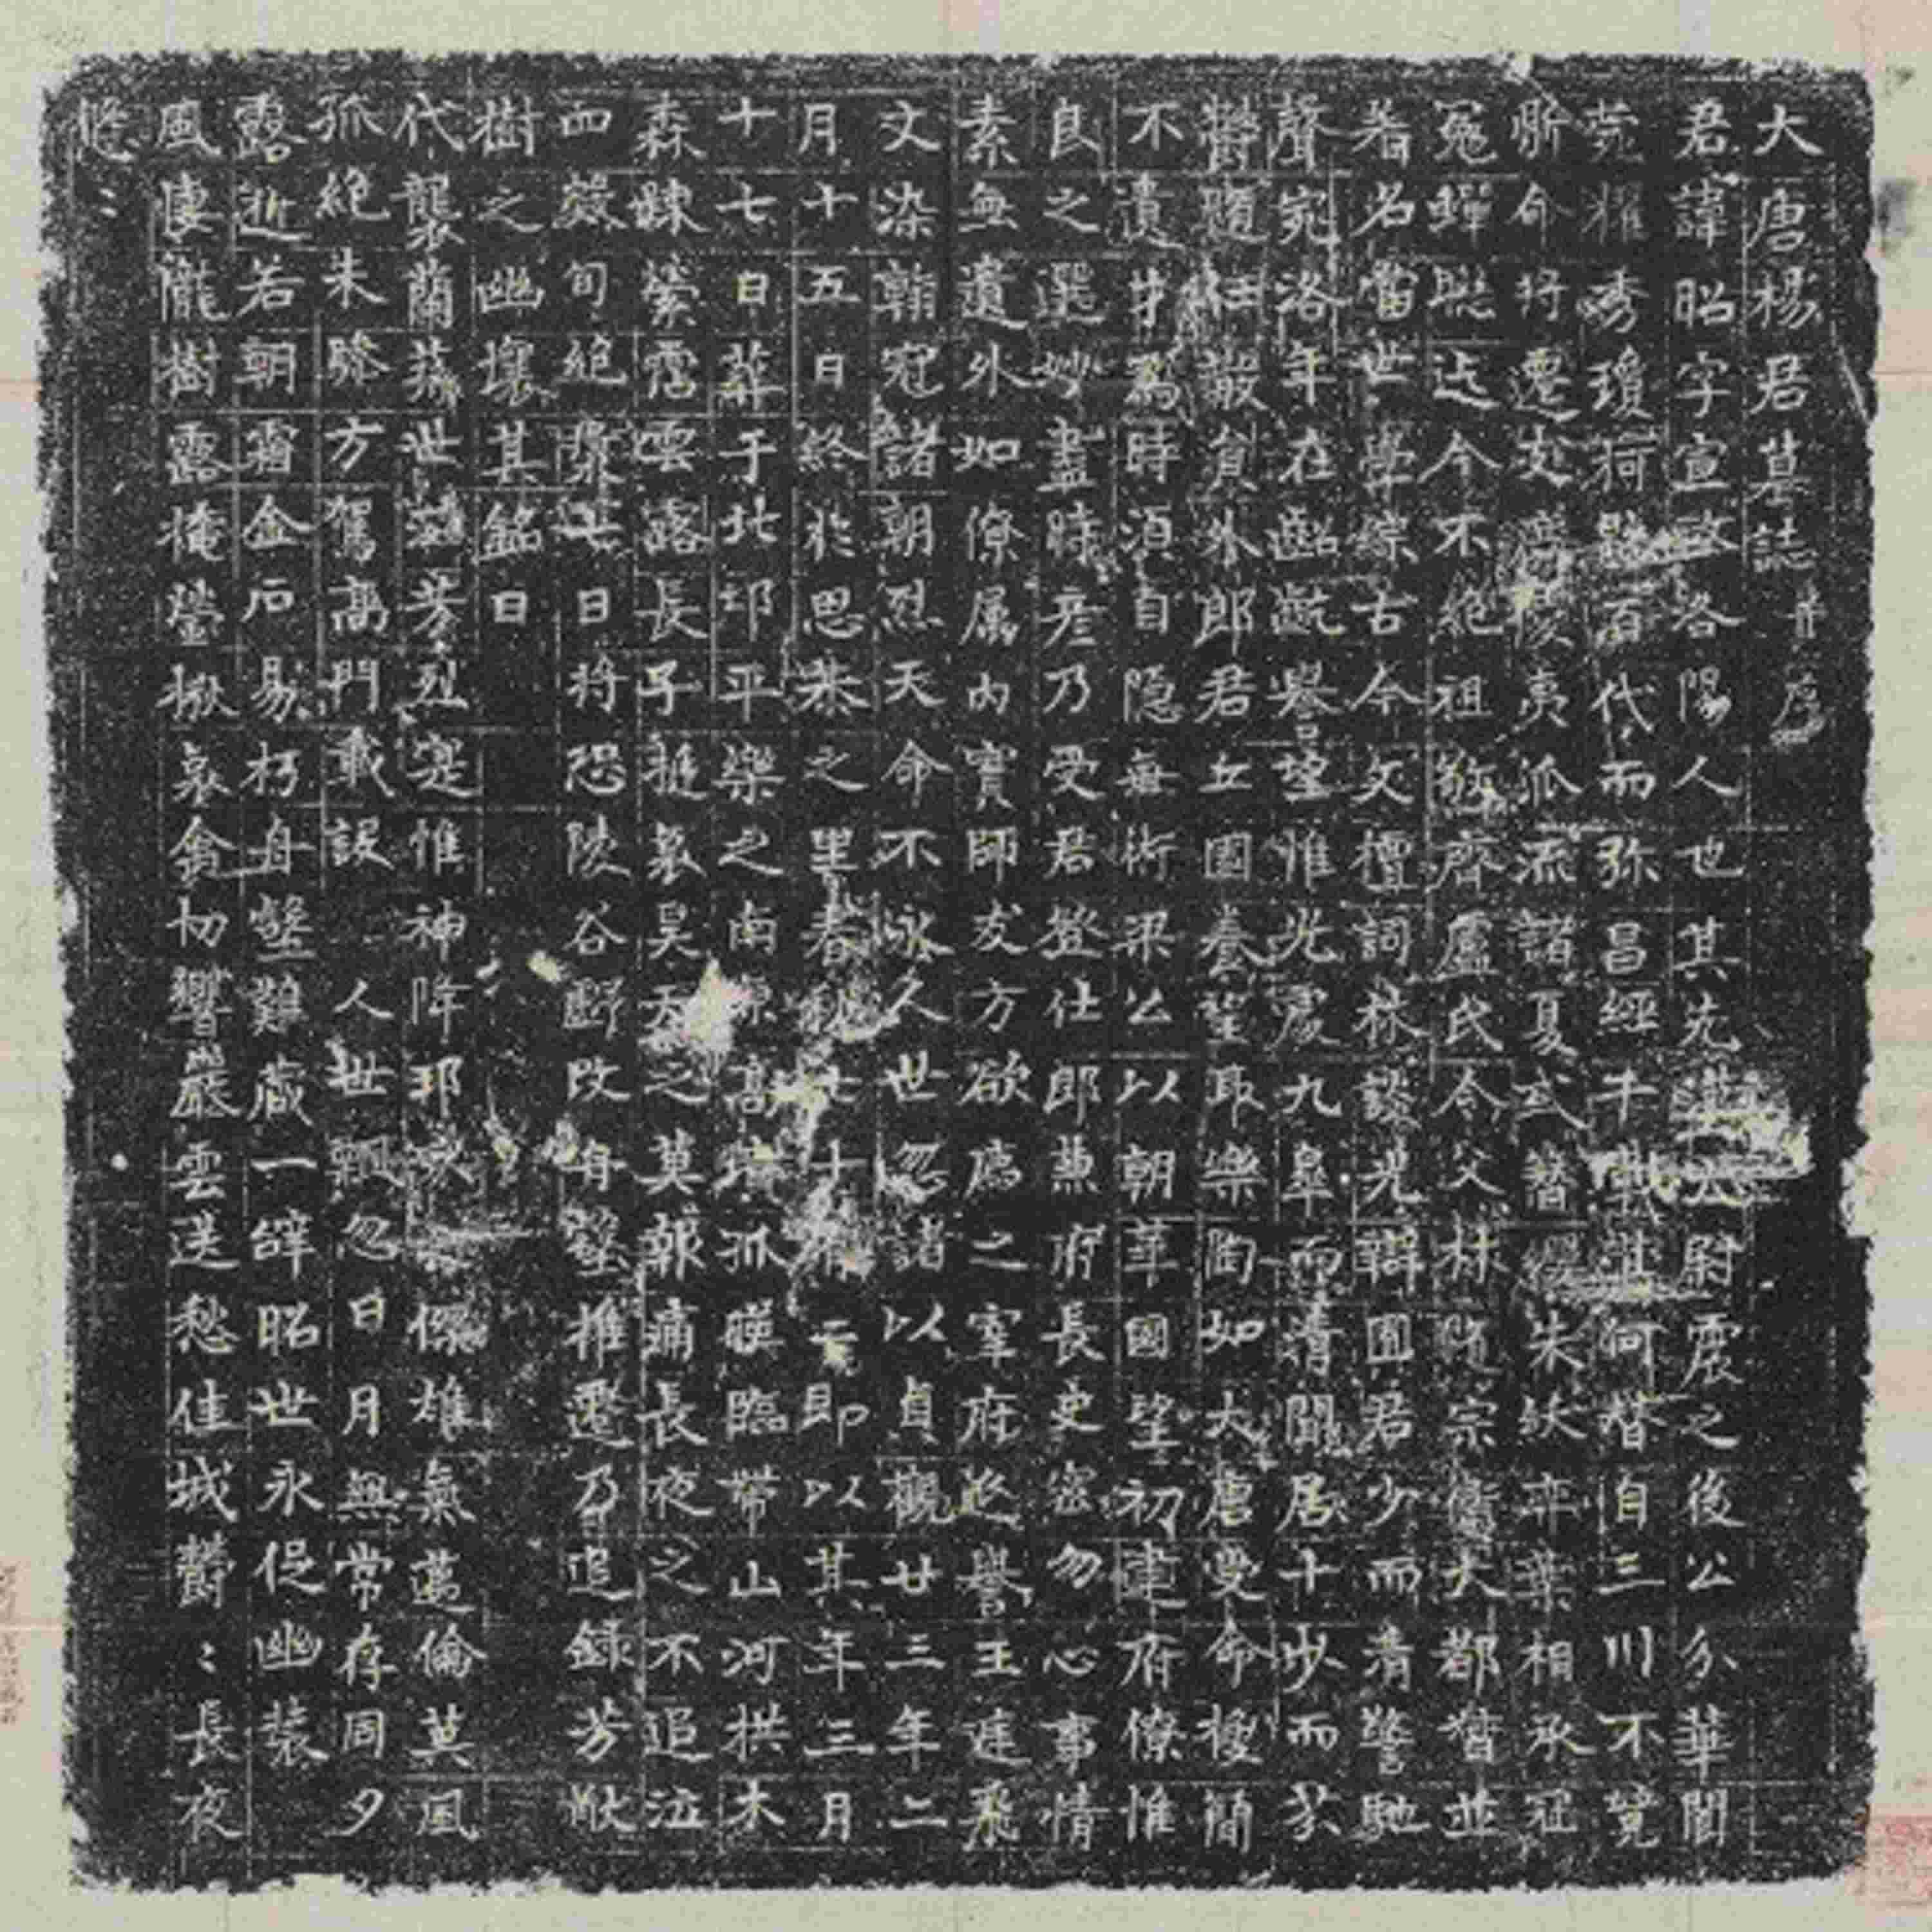 大唐楊君墓誌并序
君諱昭字宣政洛陽人也其先漢太尉震之後公分華閫
菀耀秀瓊荷百代而弥昌經千何替自三川不竟
斯命将遷爰夷派流諸夏式替纓朱紱弈葉相承冠
冕蟬聯迄今不絶祖敬齊盧氏令父林隨宗衛大都督並
著名當世學綜古今文檀詞林談光辯囿君少而清警馳
聲宛洛年在齠齔譽望惟光震九皋而清聞居十步而芬
欝隨任散員外郎君丘園養望取樂陶如大唐受命操簡
不遺才為時須自隐每術梁公以朝革國望初建府僚惟
良之選妙盡時彦乃受君登仕郎兼府長史密勿心事情
素無遺外如僚属内實師友方欲膺之宰府延譽王庭飛
文染翰冠諸朝烈天命不永人世忽諸以貞觀廿三年二
月十五日終於思恭之里春秋七十有二即以其年三月
十七日葬于北邙平樂之南原高墳孤暎臨帶山河拱木
森踈縈霑雲露長子挺哀昊天之莫報痛長夜之不追泣
血蔬旬絶漿七日将恐陵谷斷改舟壑推遷乃追録芳猷
樹之幽壤其銘曰
代襲蘭蓀世茂芳烈寔惟神降邦傑雄氣邁倫英風
孤絶未騁方駕高門載誤人世飄忽日月無常存周夕
露逝若朝霜金石易朽舟壑難藏一辞昭世永促幽裝
風悽隴樹露掩塋楸哀禽切響巖雲送愁佳城欝〻長夜
悠〻